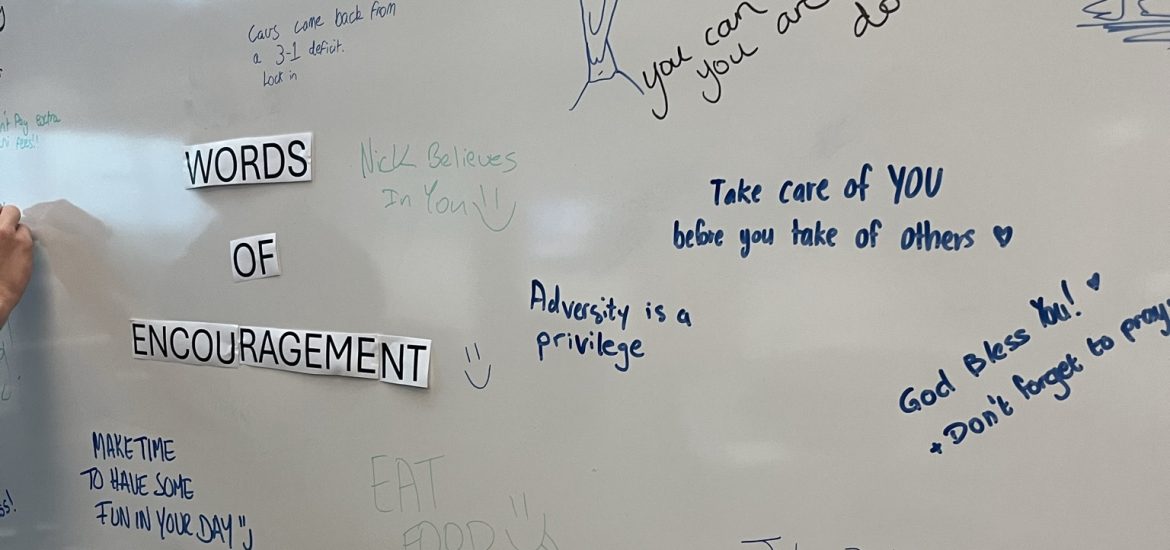 Cavs come back from
a 3-1 deficit.
Lock in
you can
you are
do
Pay extra
fees!!
WORDS
OF
ENCOURAGEMENT
Nick Believes
In You
Take care of YOU
before you take of others
Adversity is a
privilege
God Bless You!
+ Don't forget to pray
MAKE TIME
TO HAVE SOME
FUN IN YOUR DAY
EAT
FOOD